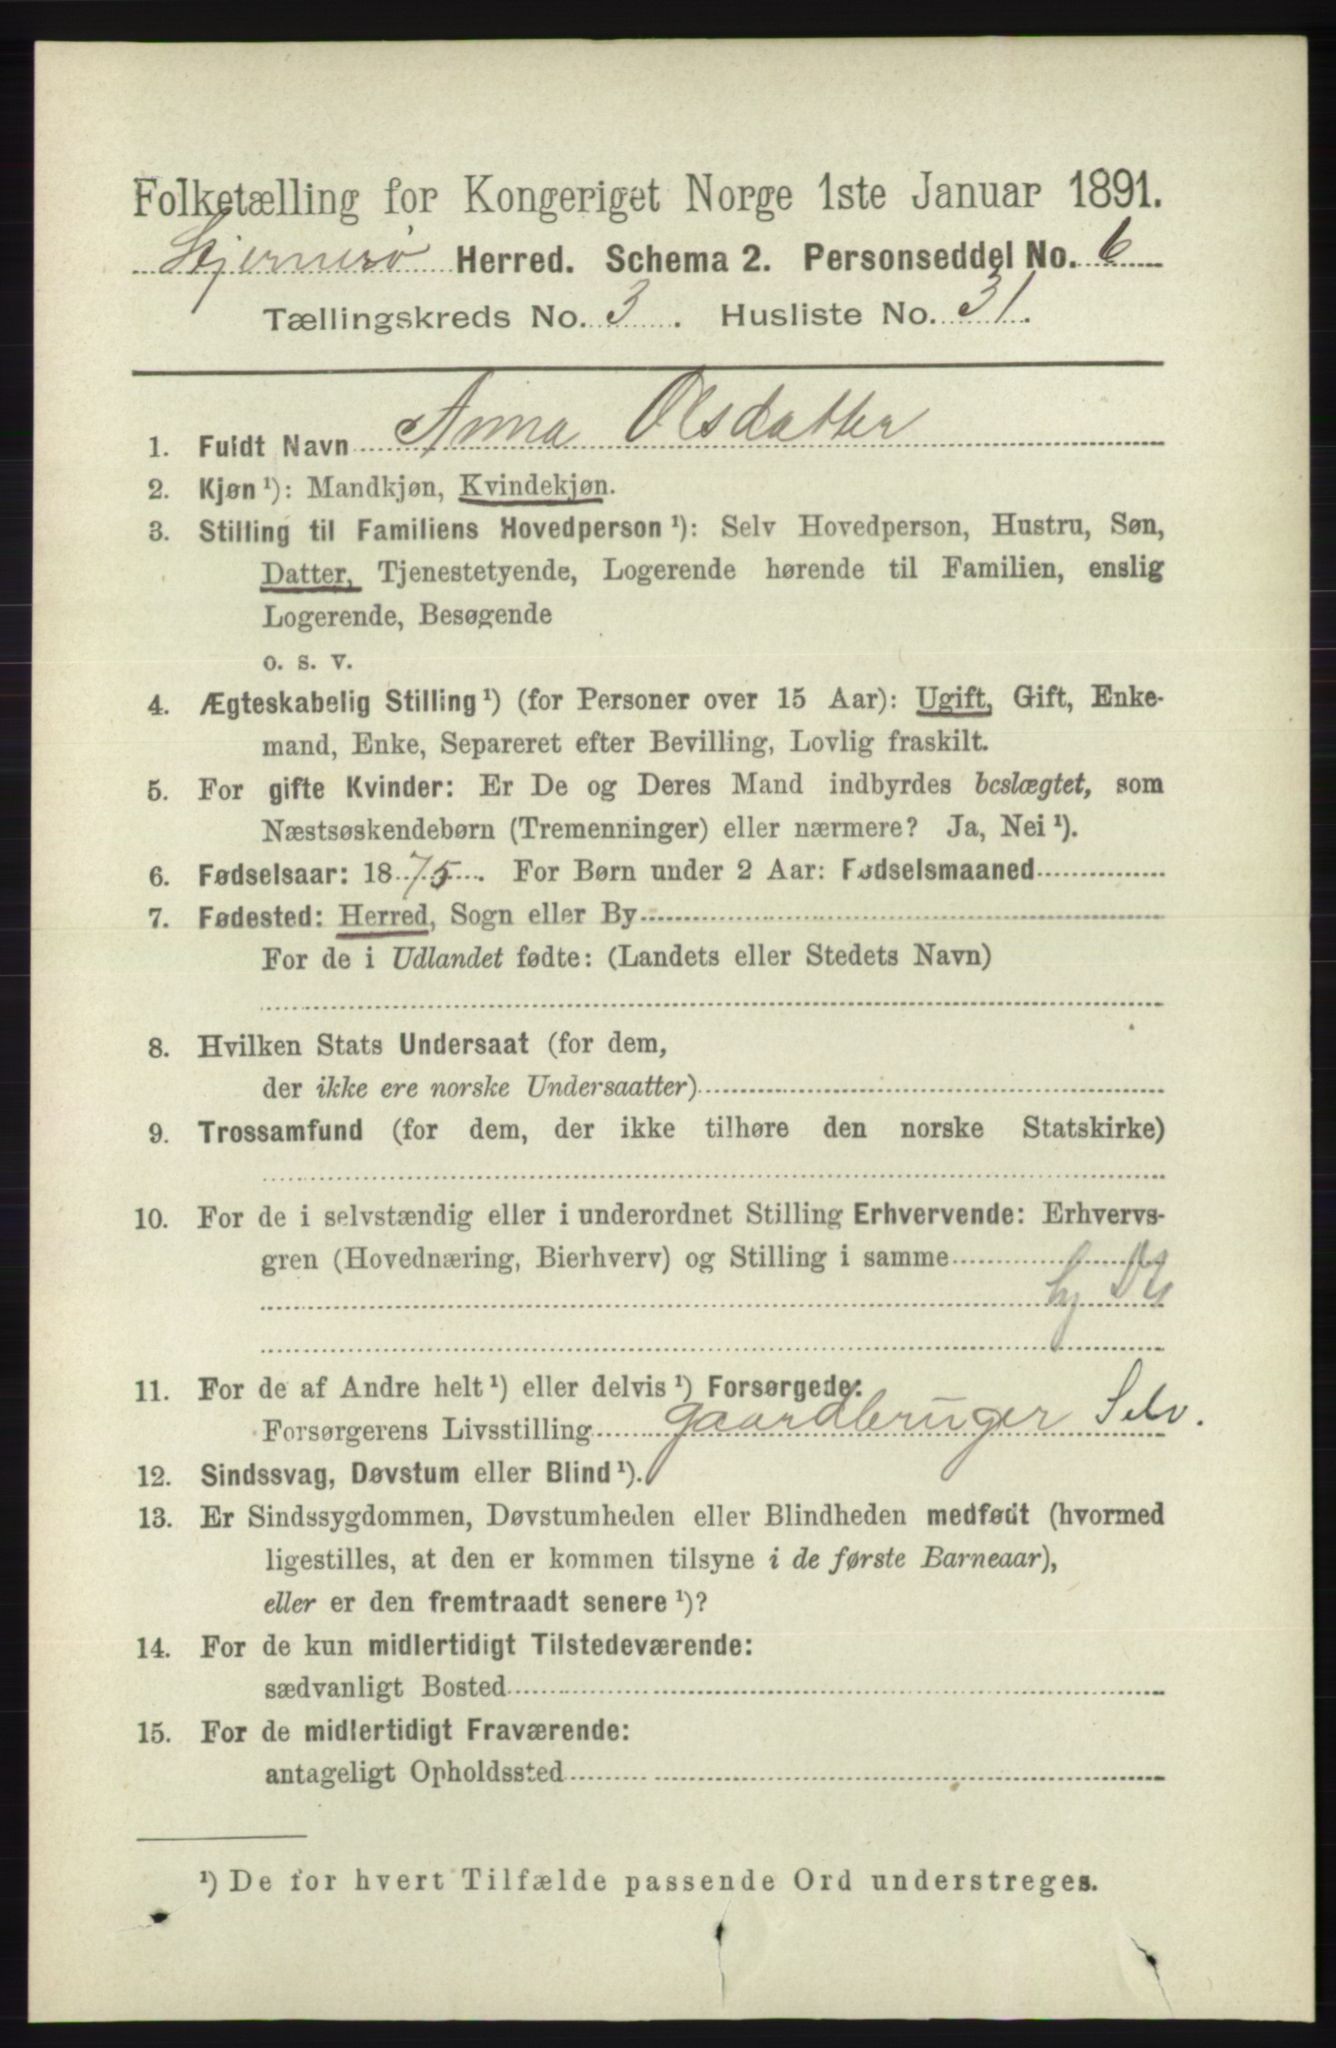 Folketælling for Kongeriget Norge 1ste Januar 1891.
Sjernerø Herred. Schema 2. Personseddel No. 6
Tællingskreds No. 3. Husliste No. 31.
1. Fuldt Navn Anna Olsdatter
2. Kjøn ¹): Mandkjøn, Kvindekjøn.
3. Stilling til Familiens Hovedperson ¹): Selv Hovedperson, Hustru, Søn,
Datter, Tjenestetyende, Logerende hørende til Familien, enslig
Logerende, Besøgende
o. s. v.
4. Ægteskabelig Stilling ¹) (for Personer over 15 Aar): Ugift, Gift, Enke-
mand, Enke, Separeret efter Bevilling, Lovlig fraskilt.
5. For gifte Kvinder: Er De og Deres Mand indbyrdes beslægtet, som
Næstsøskendebørn (Tremenninger) eller nærmere? Ja, Nei ¹).
6. Fødselsaar: 1875. For Børn under 2 Aar: Fødselsmaaned
7. Fødested: Herred, Sogn eller By
For de i Udlandet fødte: (Landets eller Stedets Navn)
8. Hvilken Stats Undersaat (for dem,
der ikke ere norske Undersaatter)
9. Trossamfund (for dem, der ikke tilhøre den norske Statskirke)
10. For de i selvstændig eller i underordnet Stilling Erhvervende: Erhvervs-
gren (Hovednæring, Bierhverv) og Stilling i samme
11. For de af Andre helt ¹) eller delvis ¹) Forsørgede:
Forsørgerens Livsstilling gaardbruger Selv.
12. Sindssvag, Døvstum eller Blind ¹).
13. Er Sindssygdommen, Døvstumheden eller Blindheden medfødt (hvormed
ligestilles, at den er kommen tilsyne i de første Barneaar),
eller er den fremtraadt senere ¹)?
14. For de kun midlertidigt Tilstedeværende:
sædvanligt Bosted
15. For de midlertidigt Fraværende:
antageligt Opholdssted
¹) De for hvert Tilfælde passende Ord understreges.